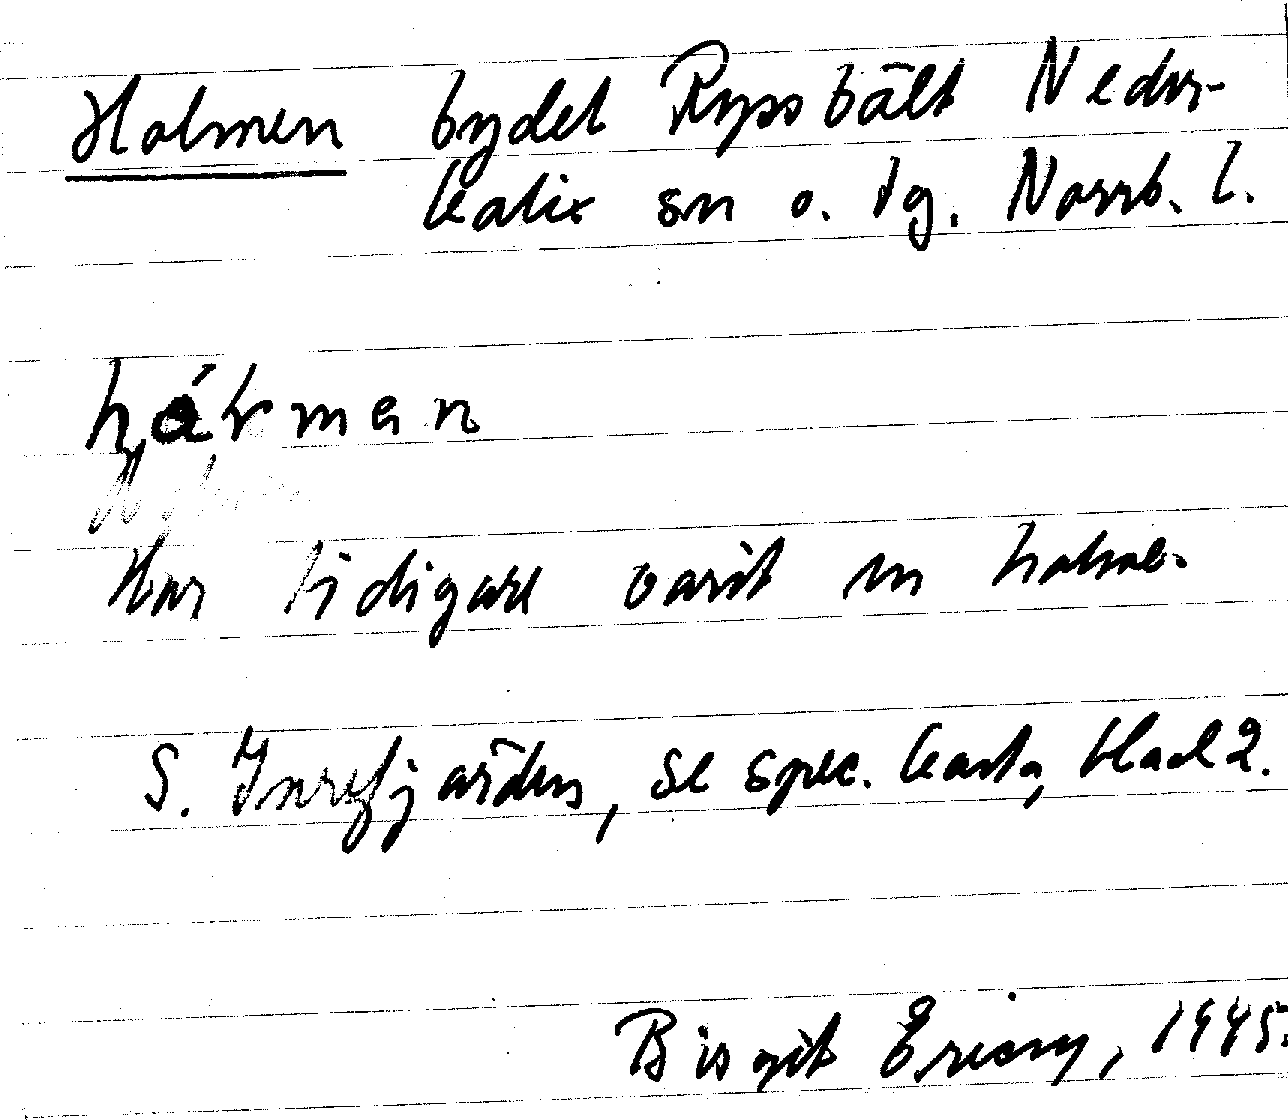 Holmen bydel Ryssbält Neder-
kalix sn o. tg. Norrb. l.
hármen
Har tidigare varit en holme.
S. Inrefjärden, se spec. karta, blad 2.
Birgit Ericny, 1945.